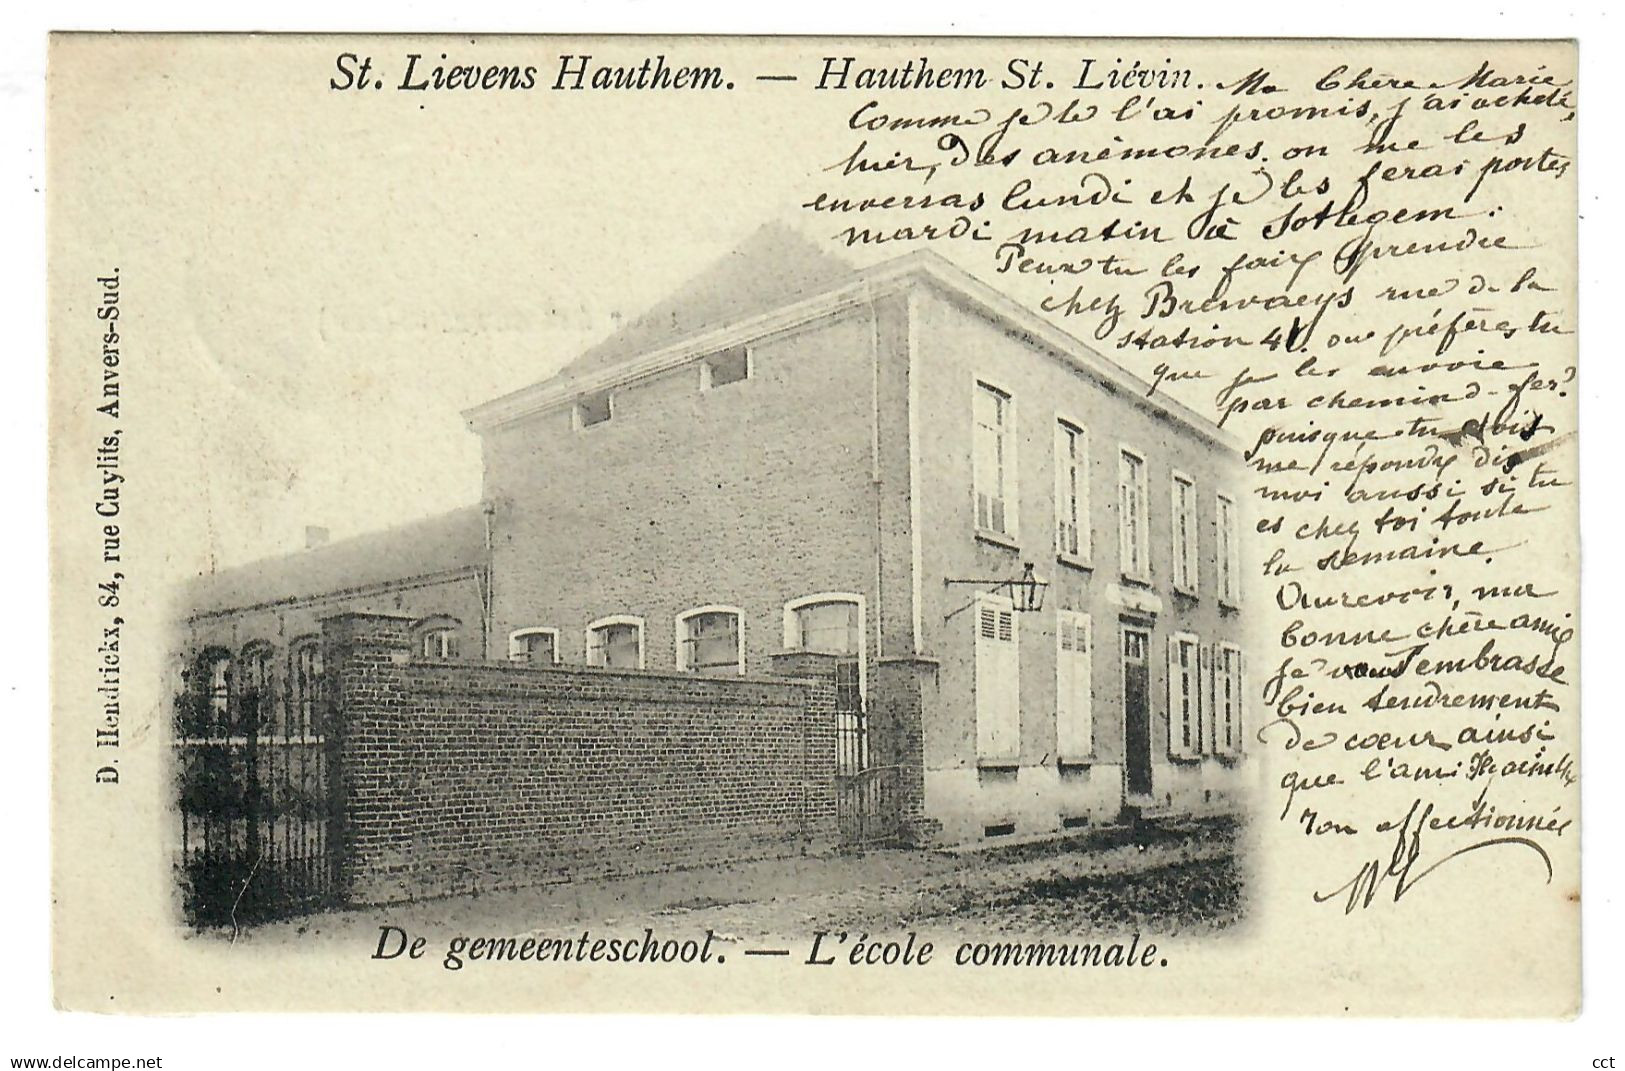 St. Lievens Hauthem. — Hauthem St. Liévin.
Ma Chère Marie
Comme je te l'ai promis, j'ai acheté,
hier, des anémones. on me les
enverras lundi et je les ferai portes
mardi matin à Sottegem.
Peux tu les faire prendre
chez Brewaeys rue de la
station 41. ou préfères tu
que je les envoie
par chemin d-fer?
puisque tu dois
me répondre dis
moi aussi si tu
es chez toi toute
la semaine.
Aurevoir, ma
bonne chère amie
je t'embrasse
bien tendrement
de cœur ainsi
que l'ami Hyacinthe
Ton affectionnée
D. Hendrickx, 84, rue Cuylits, Anvers-Sud.
De gemeenteschool. — L'école communale.
https://www.delcampe.net
cct